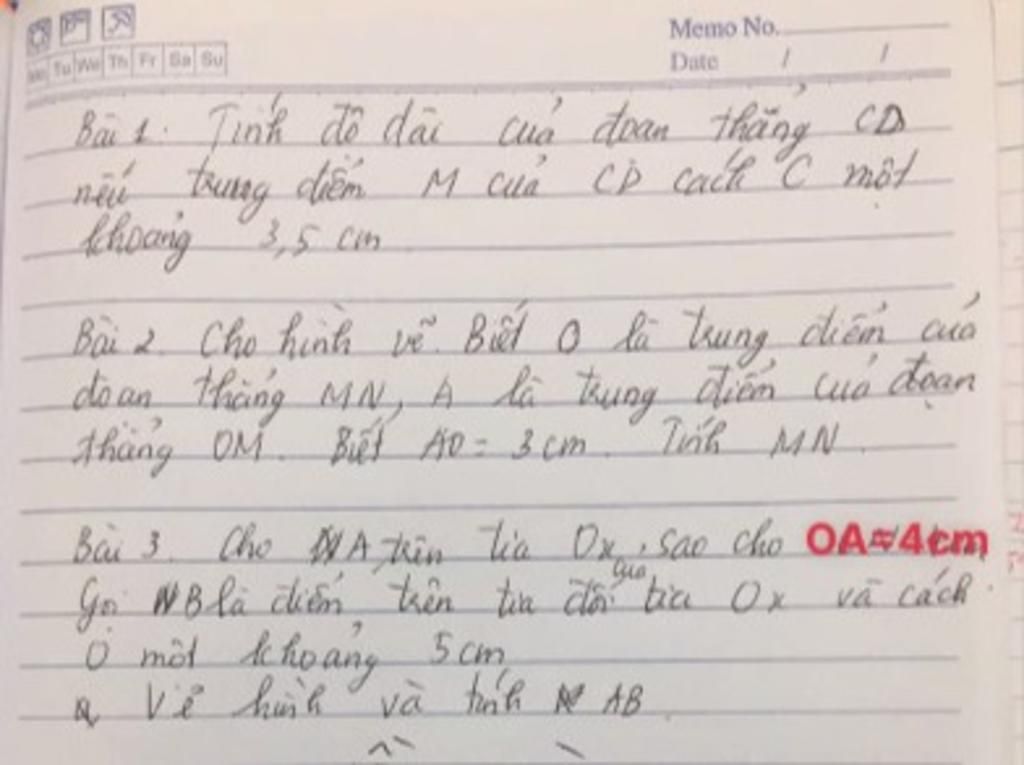 Memo No.
Mo Tu We Th Fr Sa Su
Date / /
Bài 1. Tính độ dài của đoạn thẳng CD
nếu trung điểm M của CD cách C một
khoảng 3,5 cm
Bài 2. Cho hình vẽ. Biết O là trung điểm của
đoạn thẳng MN, A là trung điểm của đoạn
thẳng OM. Biết AO = 3 cm. Tính MN.
Bài 3. Cho A trên tia Ox, sao cho OA=4cm
Gọi B là điểm trên tia đối của tia Ox và cách
O một khoảng 5 cm
a Vẽ hình và tính AB